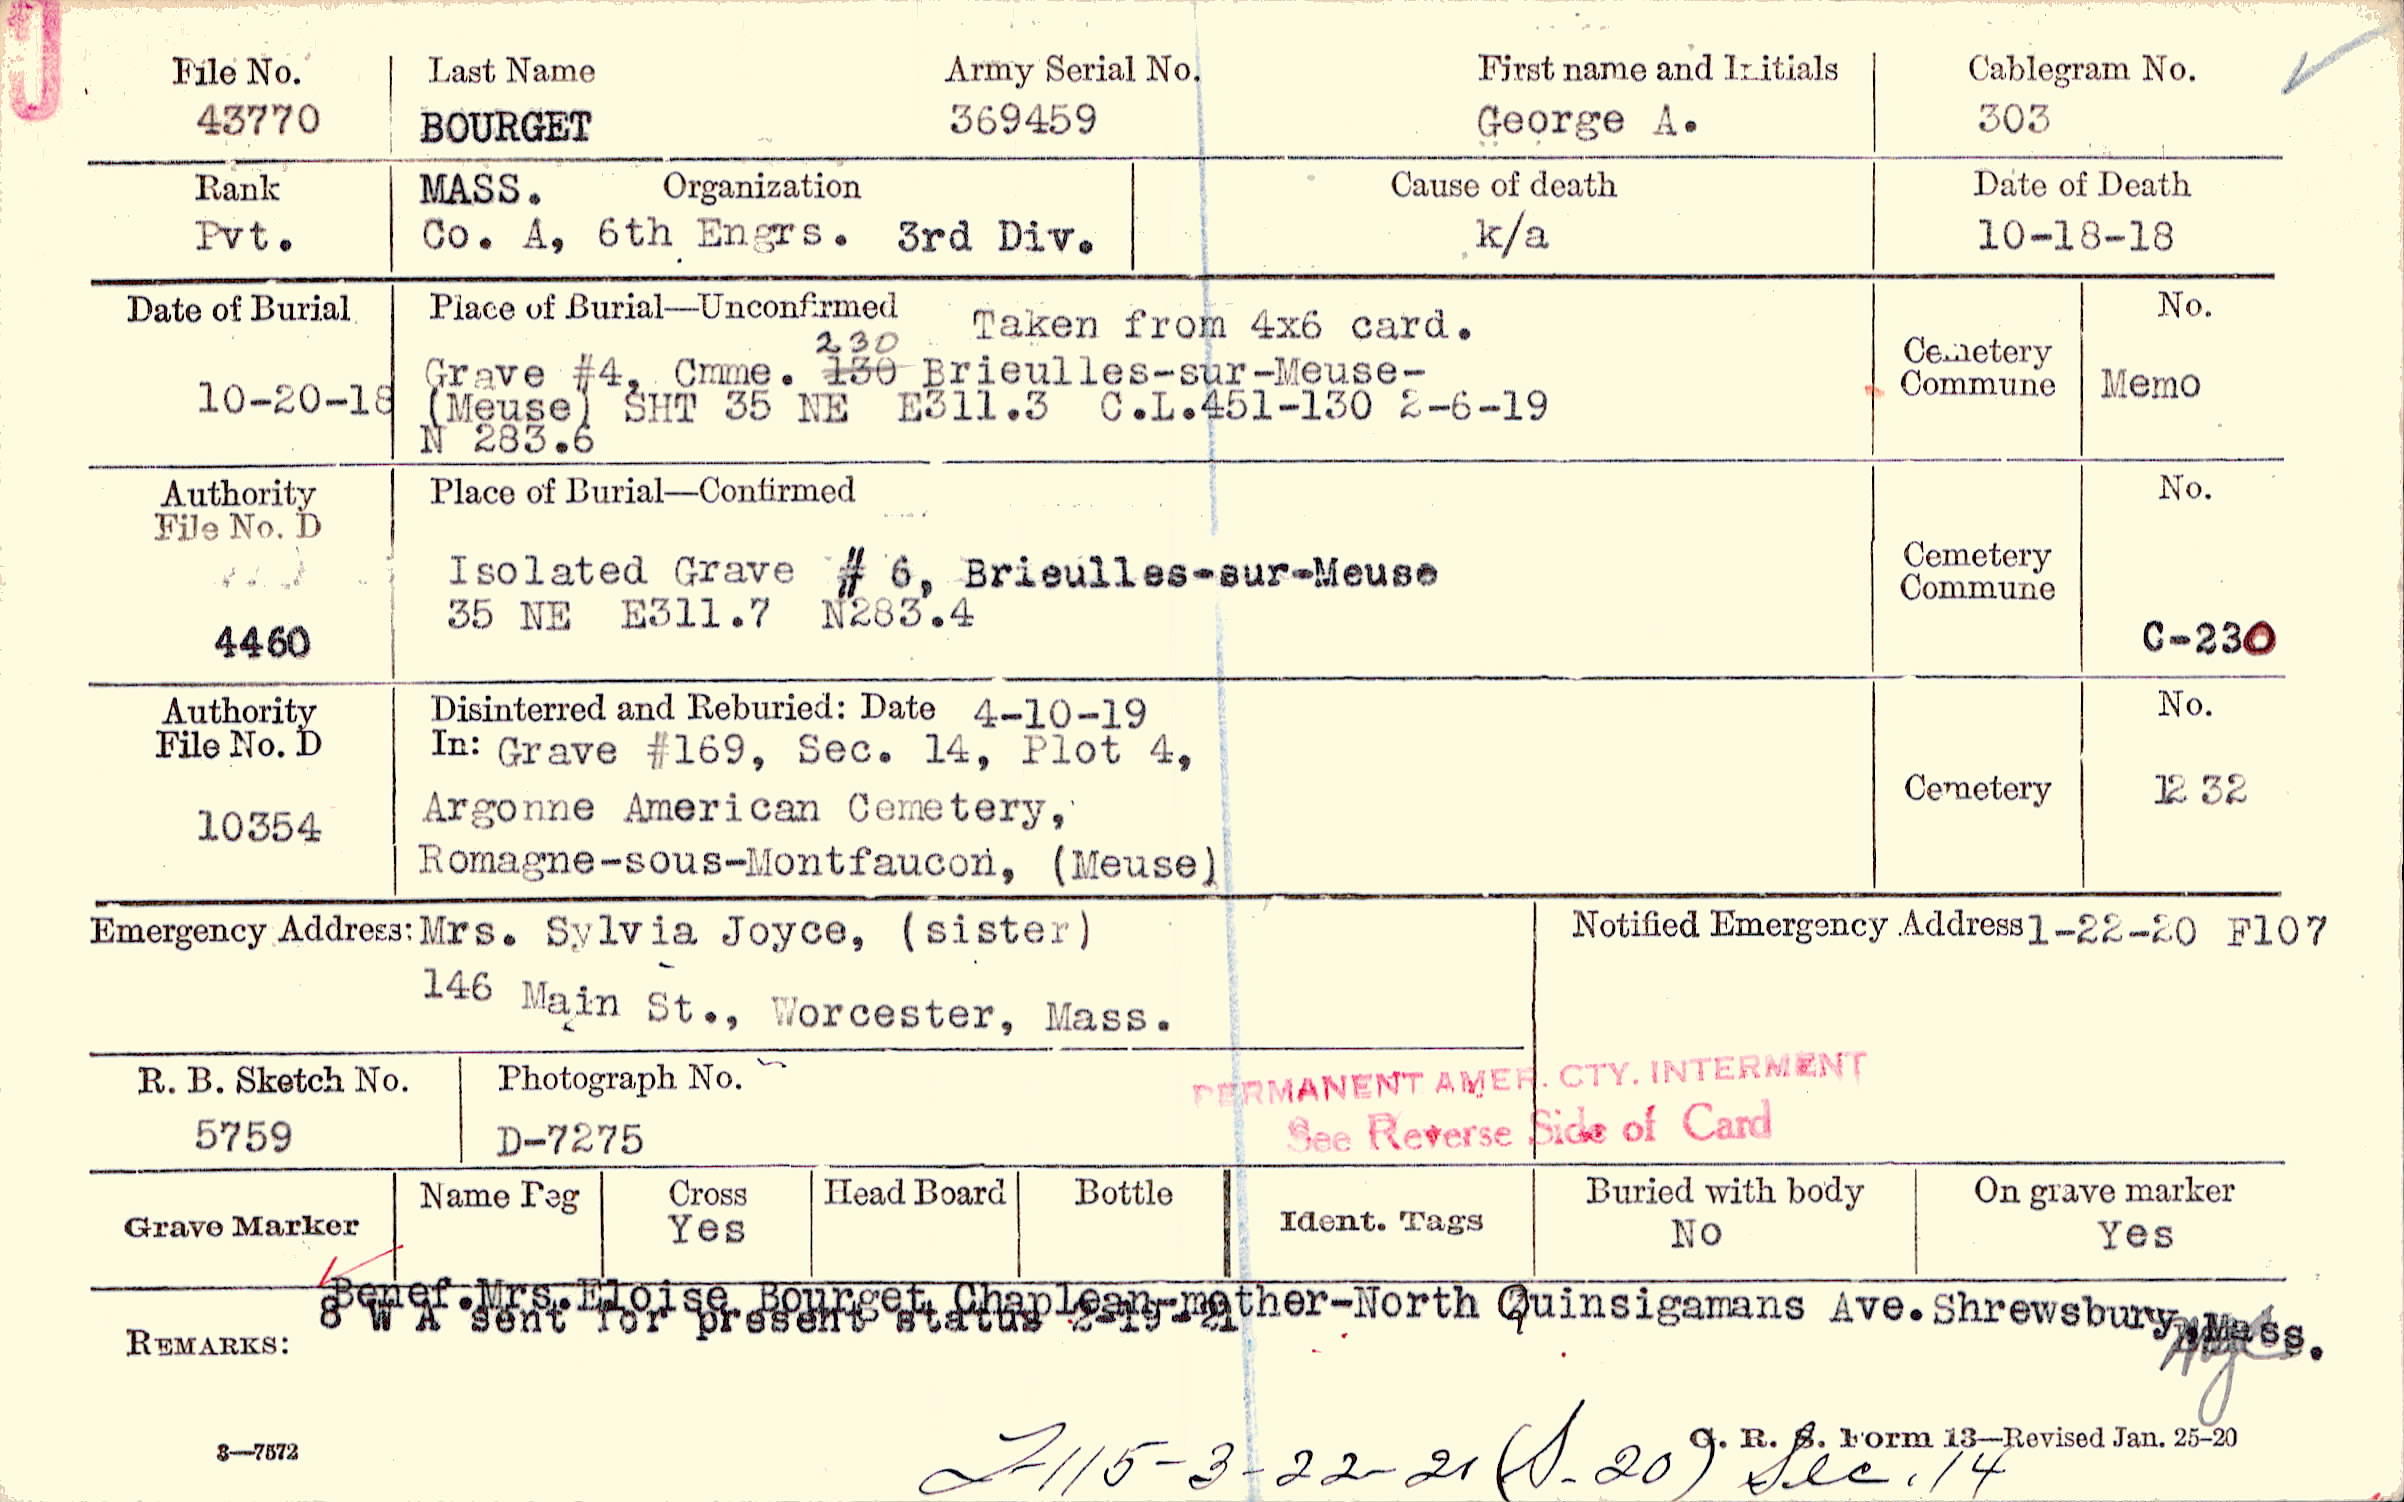 File No. Last Name Army Serial No. First name and Initials Cablegram No.
43770 BOURGET 369459 George A. 303
Rank MASS. Organization Cause of death Date of Death
Pvt. Co. A, 6th Engrs. 3rd Div. k/a 10-18-18
Date of Burial Place of Burial—Unconfirmed Taken from 4x6 card. No.
230
Grave #4, Cmme. 130 Brieulles-sur-Meuse- Cemetery
10-20-18 (Meuse) SHT 35 NE E311.3 C.L.451-130 2-6-19 Commune Memo
N 283.6
Authority Place of Burial—Confirmed No.
File No. D
Isolated Grave # 6, Brieulles-sur-Meuse Cemetery
35 NE E311.7 N283.4 Commune
4460 C-230
Authority Disinterred and Reburied: Date 4-10-19 No.
File No. D In: Grave #169, Sec. 14, Plot 4,
Argonne American Cemetery, Cemetery 1232
10354
Romagne-sous-Montfaucon, (Meuse)
Emergency Address: Mrs. Sylvia Joyce, (sister) Notified Emergency Address 1-22-20 F107
146 Main St., Worcester, Mass.
R. B. Sketch No. Photograph No. PERMANENT AMER. CTY. INTERMENT
5759 D-7275 See Reverse Side of Card
Grave Marker Name Peg Cross Head Board Bottle Ident. Tags Buried with body On grave marker
Yes No Yes
Benef.Mrs.Eloise Bourget Chaplean-mother-North Quinsigamans Ave.Shrewsbury,Mass.
8 W A sent for present status 2-19-21
REMARKS:
3—7572 G. R. S. Form 13—Revised Jan. 25-20
115-3-22-21 (S-20) Sec. 14